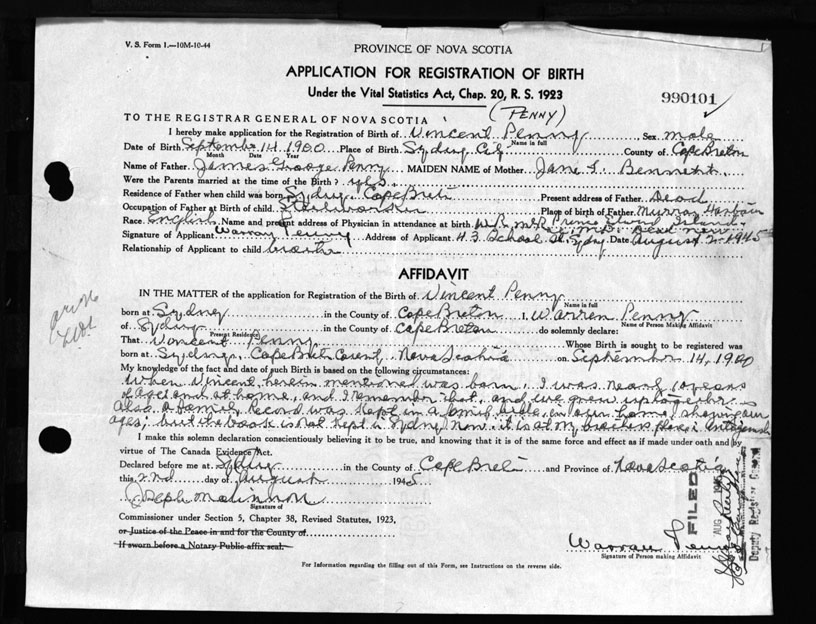 V. S. Form 1.—10M-10-44
PROVINCE OF NOVA SCOTIA
APPLICATION FOR REGISTRATION OF BIRTH
Under the Vital Statistics Act, Chap. 20, R. S. 1923
990101
(PENNY)
TO THE REGISTRAR GENERAL OF NOVA SCOTIA
I hereby make application for the Registration of Birth of Vincent Penny Sex male
Name in full
Date of Birth September 14 1900 Place of Birth Sydney City County of Cape Breton
Month Date Year
Name of Father James George Penny MAIDEN NAME of Mother Jane Bennett
Were the Parents married at the time of the Birth? yes
Residence of Father when child was born Sydney Cape Breton Present address of Father Dead
Occupation of Father at Birth of child Place of birth of Father Murray Harbour
Race English Name and present address of Physician in attendance at birth Dead now
Signature of Applicant Warren Penny Address of Applicant 43 School St. Sydney Date August 2-1945
Relationship of Applicant to child
AFFIDAVIT
IN THE MATTER of the application for Registration of the Birth of Vincent Penny
Name in full
born at Sydney in the County of Cape Breton I, Warren Penny
Name of Person Making Affidavit
of Sydney in the County of Cape Breton do solemnly declare:
Present Residence
That Vincent Penny Whose Birth is sought to be registered was
born at Sydney, Cape Breton County, Nova Scotia on September 14, 1900
My knowledge of the fact and date of such Birth is based on the following circumstances:
When Vincent, herein mentioned was born, I was nearly 10 years
of age and at home, and I remember that, and we grew up together.
Also a family record was kept in a family bible, in our home, showing our
ages; but the book is not kept in Sydney now. it is at my brother's place in Antigonish
I make this solemn declaration conscientiously believing it to be true, and knowing that it is of the same force and effect as if made under oath and by
virtue of The Canada Evidence Act.
Declared before me at Sydney in the County of Cape Breton and Province of Nova Scotia
this 2nd day of August 1945
Joseph
Signature of
Commissioner under Section 5, Chapter 38, Revised Statutes, 1923,
or Justice of the Peace in and for the County of
If sworn before a Notary Public affix seal.
Warren Penny
Signature of Person making Affidavit
FILED
AUG
Deputy Registrar General
For Information regarding the filling out of this Form, see Instructions on the reverse side.